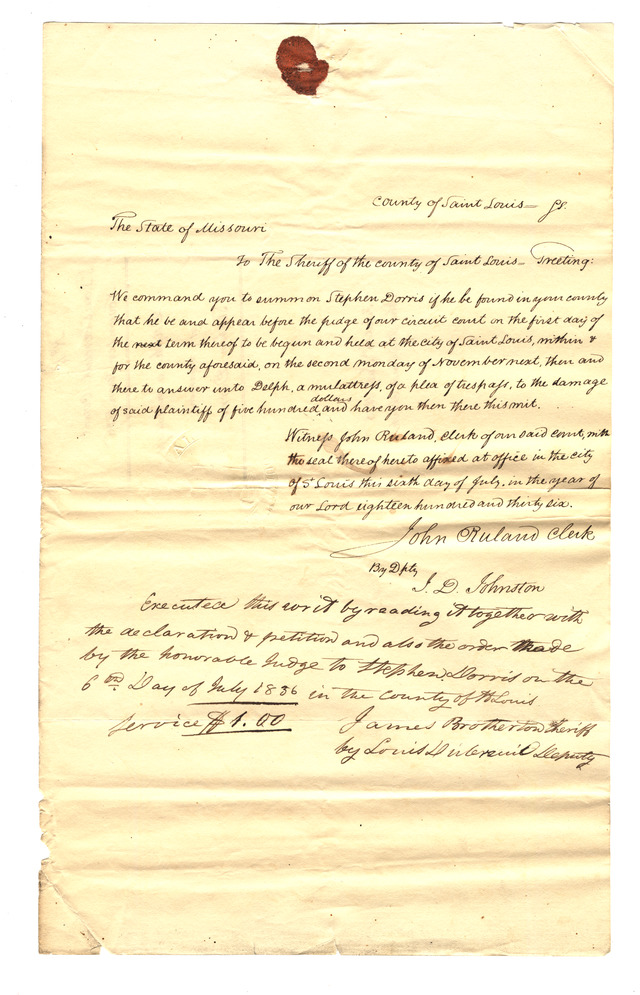 County of Saint Louis = ss.
The State of Missouri
To The Sheriff of the county of Saint Louis = Greeting:
We command you to summon Stephen Dorris if he be found in your county
that he be and appear before the judge of our circuit court on the first day of
the next term thereof to be begun and held at the city of Saint Louis, within &
for the county aforesaid, on the second monday of November next, then and
there to answer unto Delph, a mulattress, of a plea of trespass, to the damage
dollars
of said plaintiff of five hundred and have you then there this writ.
Witness John Ruland, Clerk of our said court, with
the seal thereof hereto affixed at office in the city
of St Louis this sixth day of July, in the year of
our Lord eighteen hundred and thirty six.
John Ruland Clerk
By Dpty
J. D. Johnston
Executed this writ by reading it together with
the declaration & petition and also the order made
by the honorable Judge to Stephen Dorris on the
6th Day of July 1836 in the County of St Louis
Service $1.00
James Brotherton Sheriff
by Louis Dubreuil Deputy